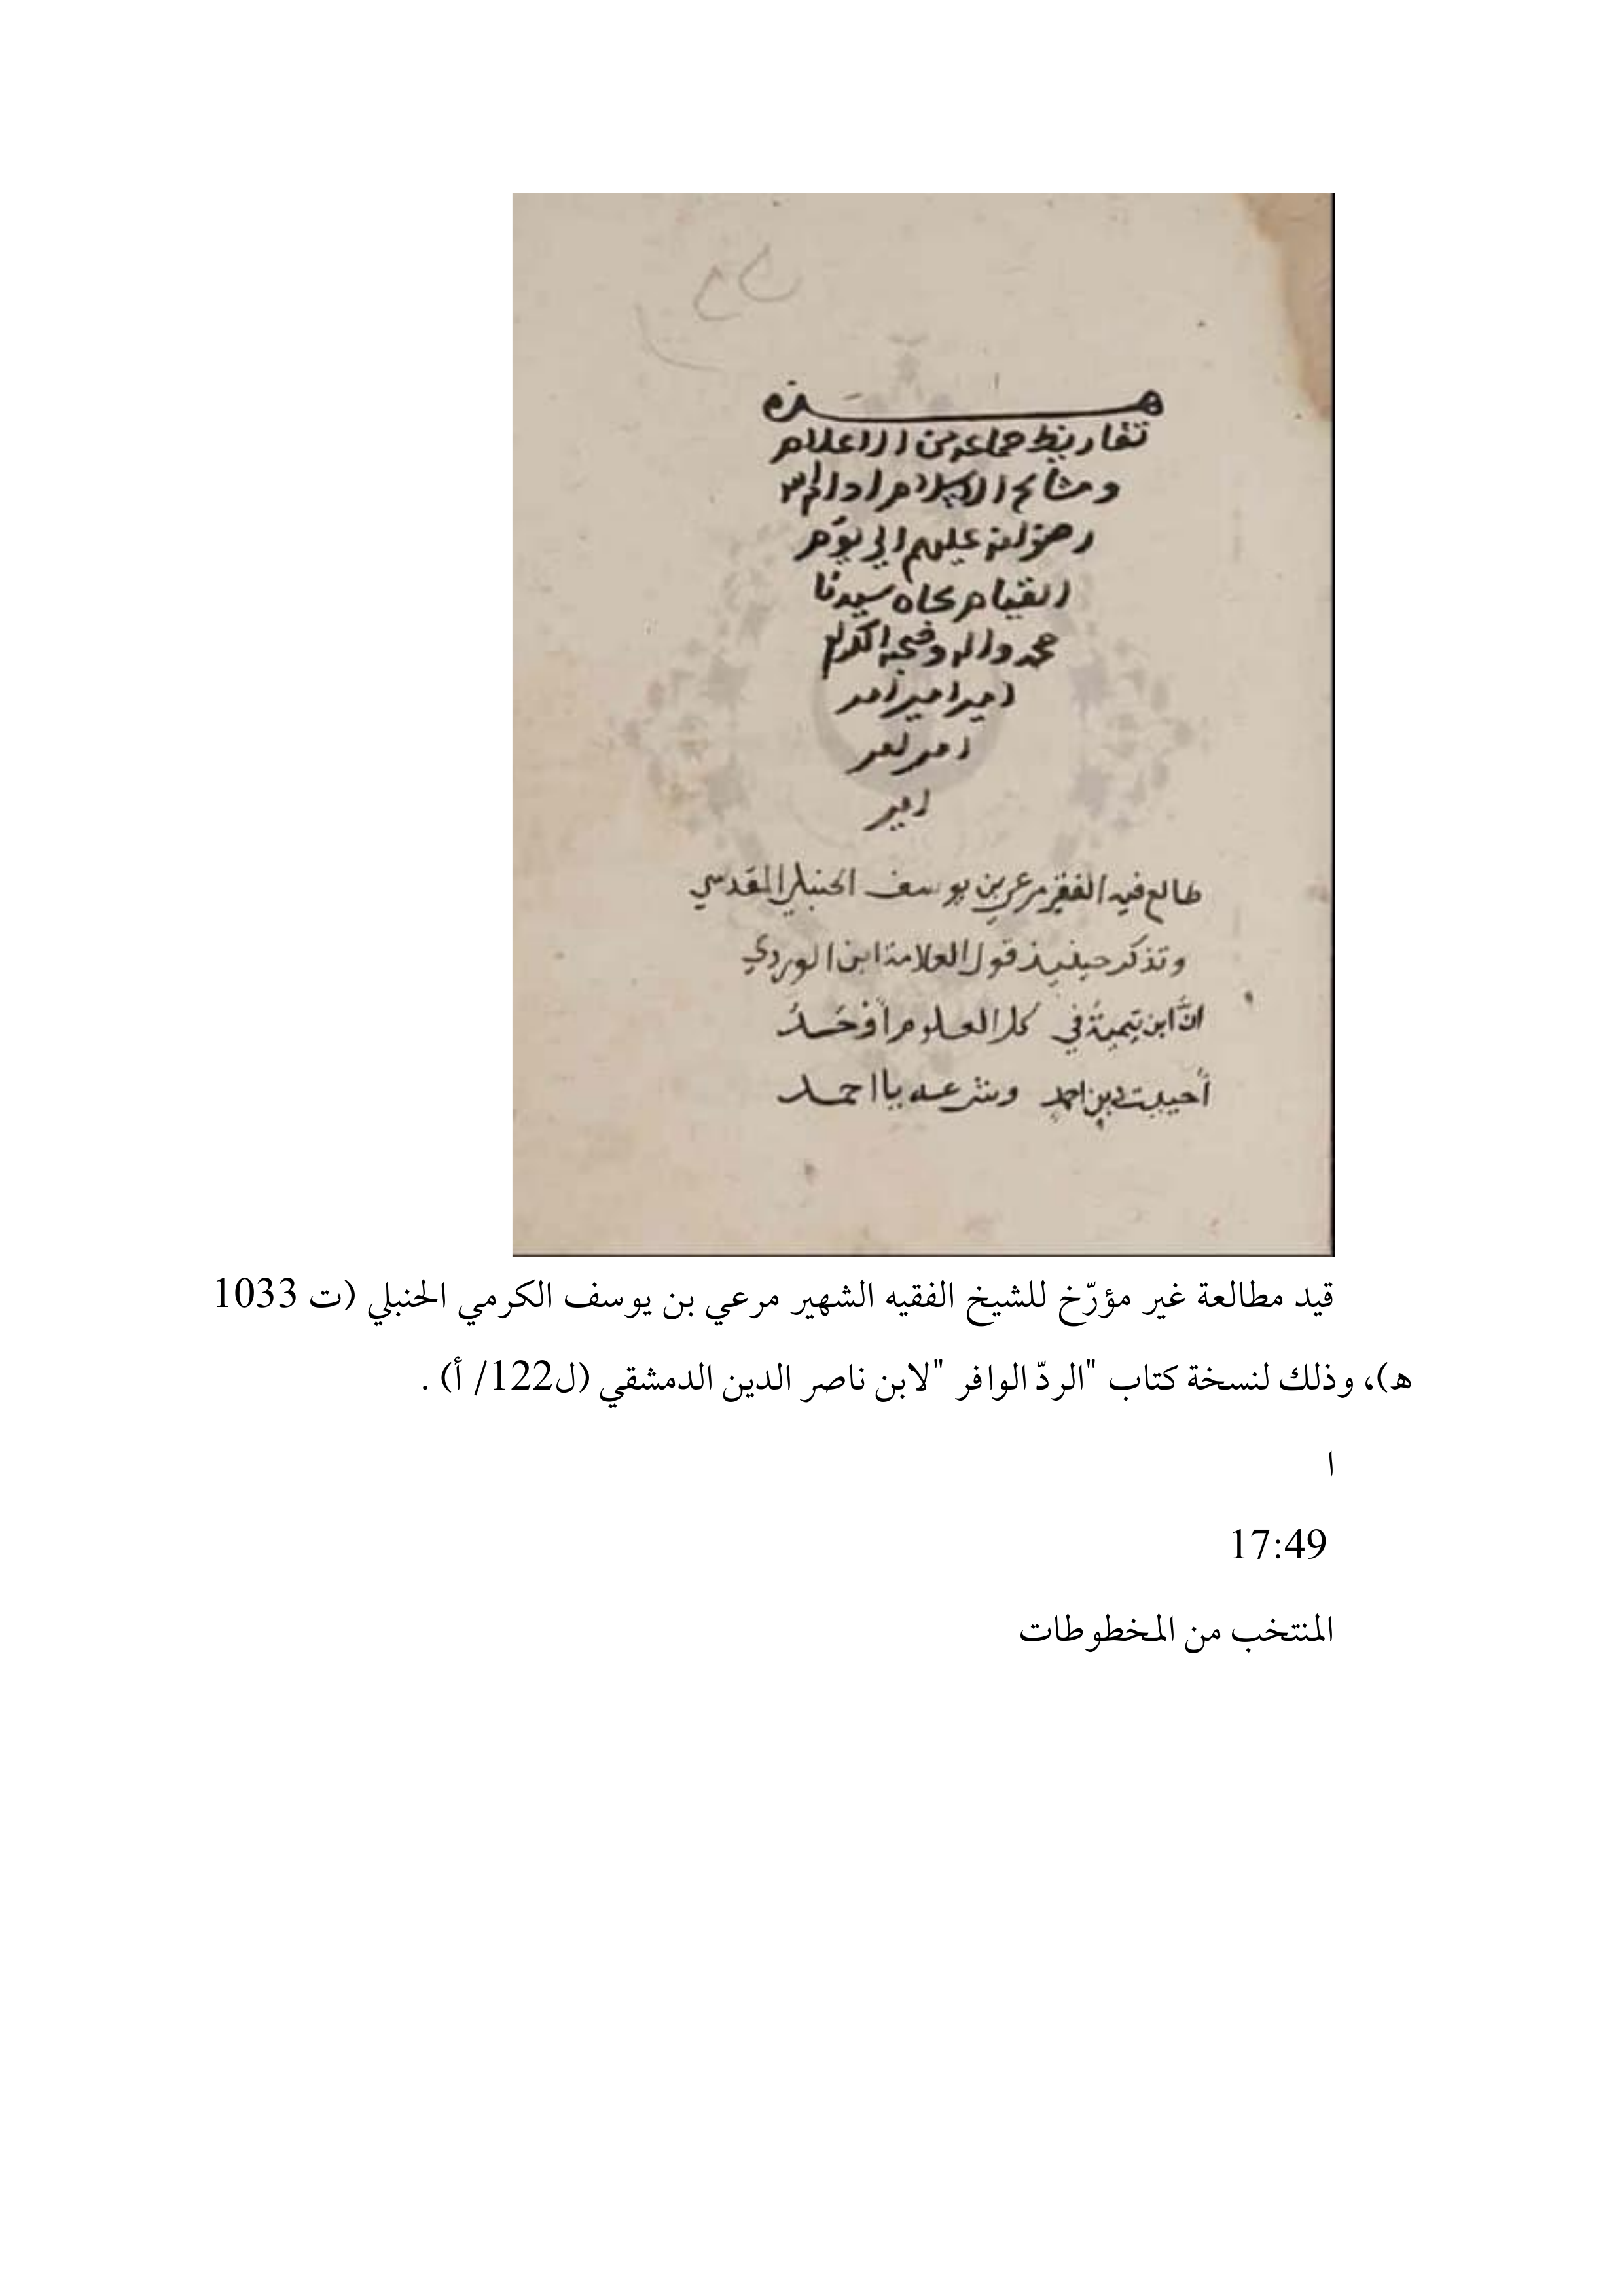 هـــذه
تقاريظ جماعه من الاعلام
ومشايخ الاسلام
رضوان الله عليهم الي يوم
القيام بجاه سيدنا
محمد واله وصحبه الكرام
امين امين امين
امين امين
امين
طالع فيه الفقير مرعي بن يوسف الحنبلي المقدسي
وتذكر حينيذ قول العلامة ابن الوردي
انَّ ابن تيميةٌ في كل العلوم أَوْحَدُ
أحييت دين احمد وشرعه يا احمد
قيد مطالعة غير مؤرّخ للشيخ الفقيه الشهير مرعي بن يوسف الكرمي الحنبلي (ت 1033
ه)، وذلك لنسخة كتاب "الردّ الوافر "لابن ناصر الدين الدمشقي (ل122/ أ) .
ا
17:49
المنتخب من المخطوطات